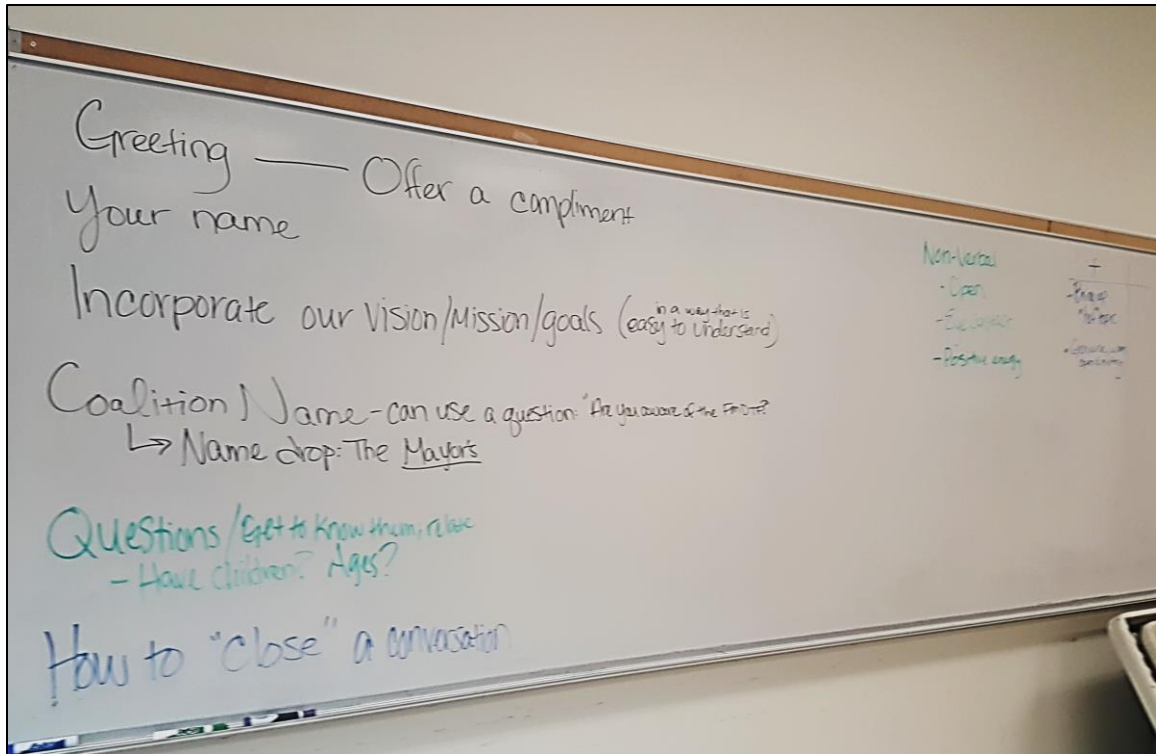 Greeting — Offer a compliment
Your name
Incorporate our Vision/Mission/goals (in a way that is easy to understand)
Coalition Name - can use a question: "Are you aware of the
↳ Name drop: The Mayor's
Questions/Get to know them, relate
- Have children? Ages?
How to "close" a conversation
Non-Verbal
- Open
- Eye
- Positive energy
+